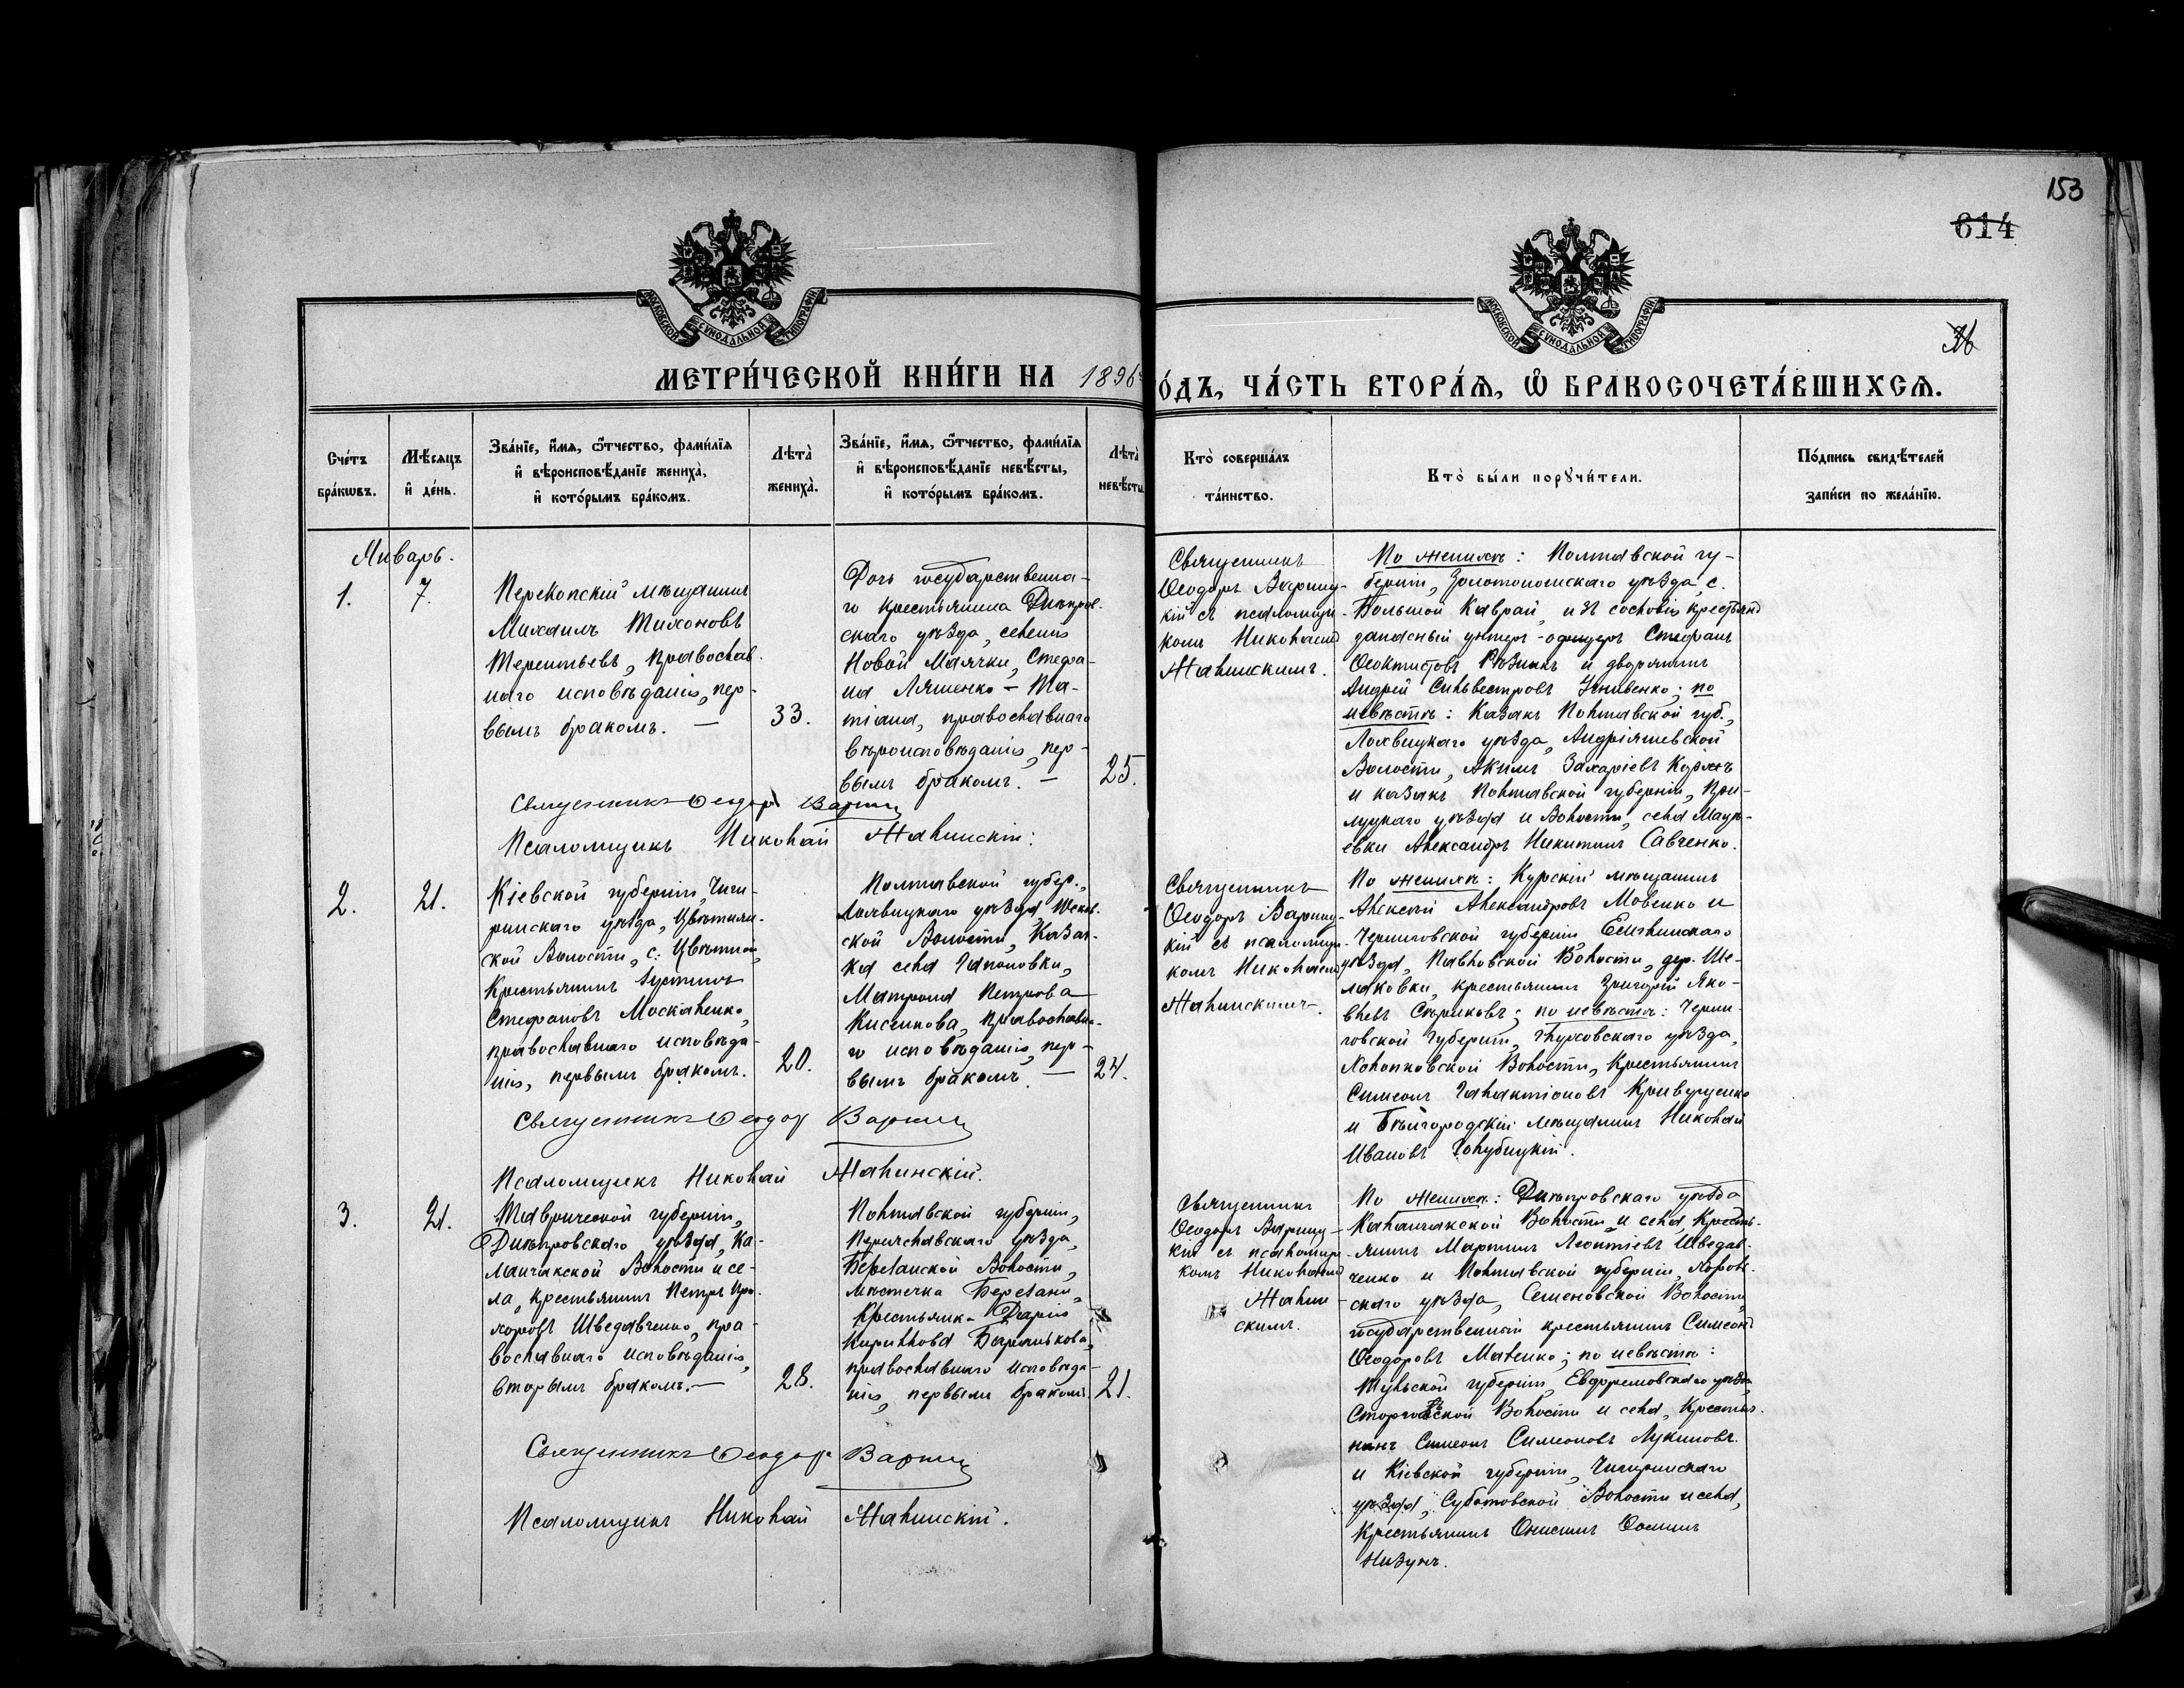 153
614
36
МОСКОВСКОЙ СѴНОДАЛЬНОЙ ТИПОГРАФІИ
МОСКОВСКОЙ СѴНОДАЛЬНОЙ ТИПОГРАФІИ
МЕТРИ́ЧЕСКОЙ КНИ́ГИ НА 1896
О́ДЪ, ЧА́СТЬ ВТОРА́Я, Ѡ҆ БРАКОСОЧЕТА́ВШИХСѦ.
Сче́тъ
бра́кѡвъ.
Мѣ́сяцъ
и҆ де́нь.
Зва́нїе, и҆́мя, ѻ҆́тчество, фами́лїя
и҆ вѣроисповѣ́данїе жениха̀,
и҆ кото́рымъ бра́комъ.
Лѣта̀
жениха̀.
Зва́нїе, и҆́мя, ѻ҆́тчество, фами́лїя
и҆ вѣроисповѣ́данїе невѣ́сты,
и҆ кото́рымъ бра́комъ.
Лѣта̀
невѣ́сты
Кто̀ соверша́лъ
та́инство.
Кто̀ бы́ли порꙋчи́тели.
По́дпись свидѣ́телей
за́писи по жела́нїю.
Январь.
1.
7.
Перекопскій мѣщанинъ
Михаилъ Тихоновъ
Терентьевъ, православ-
наго исповѣданія, пер-
вымъ бракомъ. —
33.
Дочь государственна-
го крестьянина Днѣпров-
скаго уѣзда, селенія
Новой Маячки, Стефа-
на Ляшенко — Та-
тіана, православнаго
вѣроисповѣданія, пер-
вымъ бракомъ. —
25.
Священникъ Ѳеодоръ
Псаломщикъ Николай Жалинскій.
Священникъ
Ѳеодоръ Вариц-
кій съ псаломщи-
комъ Николаемъ
Жалинскимъ.
По женихѣ: Полтавской гу-
берніи, Золотоношскаго уѣзда, с.
Большой Каврай, изъ сословія крестьянъ
запасный унтеръ-офицеръ Стефанъ
Ѳеоктистовъ и дворянинъ
Андрей Сильвестровъ по
невѣстѣ: Казакъ Полтавской губ.,
Лохвицкаго уѣзда, Андріяшевской
Волости, Акимъ Захаріевъ Коржъ
и казакъ Полтавской губерніи, При-
луцкаго уѣзда и Волости, села Мацѣ-
евки Александръ Никитинъ Савченко.
2.
21.
Кіевской губерніи, Чиги-
ринскаго уѣзда, Цвѣтнян-
ской Волости, с. Цвѣтной,
Крестьянинъ Іустинъ
Стефановъ Москаленко,
православнаго исповѣда-
нія, первымъ бракомъ.
20.
Полтавской губер.,
Лохвицкаго уѣзда,
ской Волости, Казач-
ка села Гапоновки,
Матрона Петрова
Киселкова, православна-
го исповѣданія, пер-
вымъ бракомъ. —
24.
Священникъ Ѳеодоръ
Псаломщикъ Николай Жалинскій.
Священникъ
Ѳеодоръ Вариц-
кій съ псаломщи-
комъ Николаемъ
Жалинскимъ.
По женихѣ: Курскій мѣщанинъ
Алексѣй Александровъ Мовенко и
Черниговской губерніи
уѣзда, Павловской Волости, дер. Ше-
лаковки, крестьянинъ Григорій Яко-
влевъ Стриковъ; по невѣстѣ: Черни-
говской губерніи, Глуховскаго уѣзда,
Холопковской Волости, Крестьянинъ
Симеонъ Галактіоновъ Криворученко
и Бѣлгородскій мѣщанинъ Николай
Ивановъ Голубицкій.
3.
21.
Таврической губерніи,
Днѣпровскаго уѣзда, Ка-
ланчакской Волости и се-
ла, крестьянинъ Петръ Про-
хоровъ Шведавченко, пра-
вославнаго исповѣданія,
вторымъ бракомъ. —
28.
Полтавской губерніи,
Переяславскаго уѣзда,
Березанской Волости,
мѣстечка Березани,
Крестьянк. Дарія
Кириллова Баранькова,
православнаго исповѣда-
нія, первымъ бракомъ.
21.
Священникъ Ѳеодоръ
Псаломщикъ Николай Жалинскій.
Священникъ
Ѳеодоръ Вариц-
кій съ псаломщи-
комъ Николаемъ
Жалин-
скимъ.
По женихѣ: Днѣпровскаго уѣзда
Каланчакской Волости и села, Кресть-
янинъ Мартинъ Леонтіевъ Шведав-
ченко и Полтавской губерніи, Хороль-
скаго уѣзда, Семеновской Волости,
государственный крестьянинъ Симеонъ
Ѳеодоровъ Маценко; по невѣстѣ:
Тульской губерніи, Ефремовскаго уѣзда,
ской Волости и села, Крестья-
нинъ Симеонъ Симеоновъ Лукиновъ
и Кіевской губерніи, Чигиринскаго
уѣзда, Субботовской Волости и села,
Крестьянинъ Онисимъ Ѳоминъ
Низунъ.